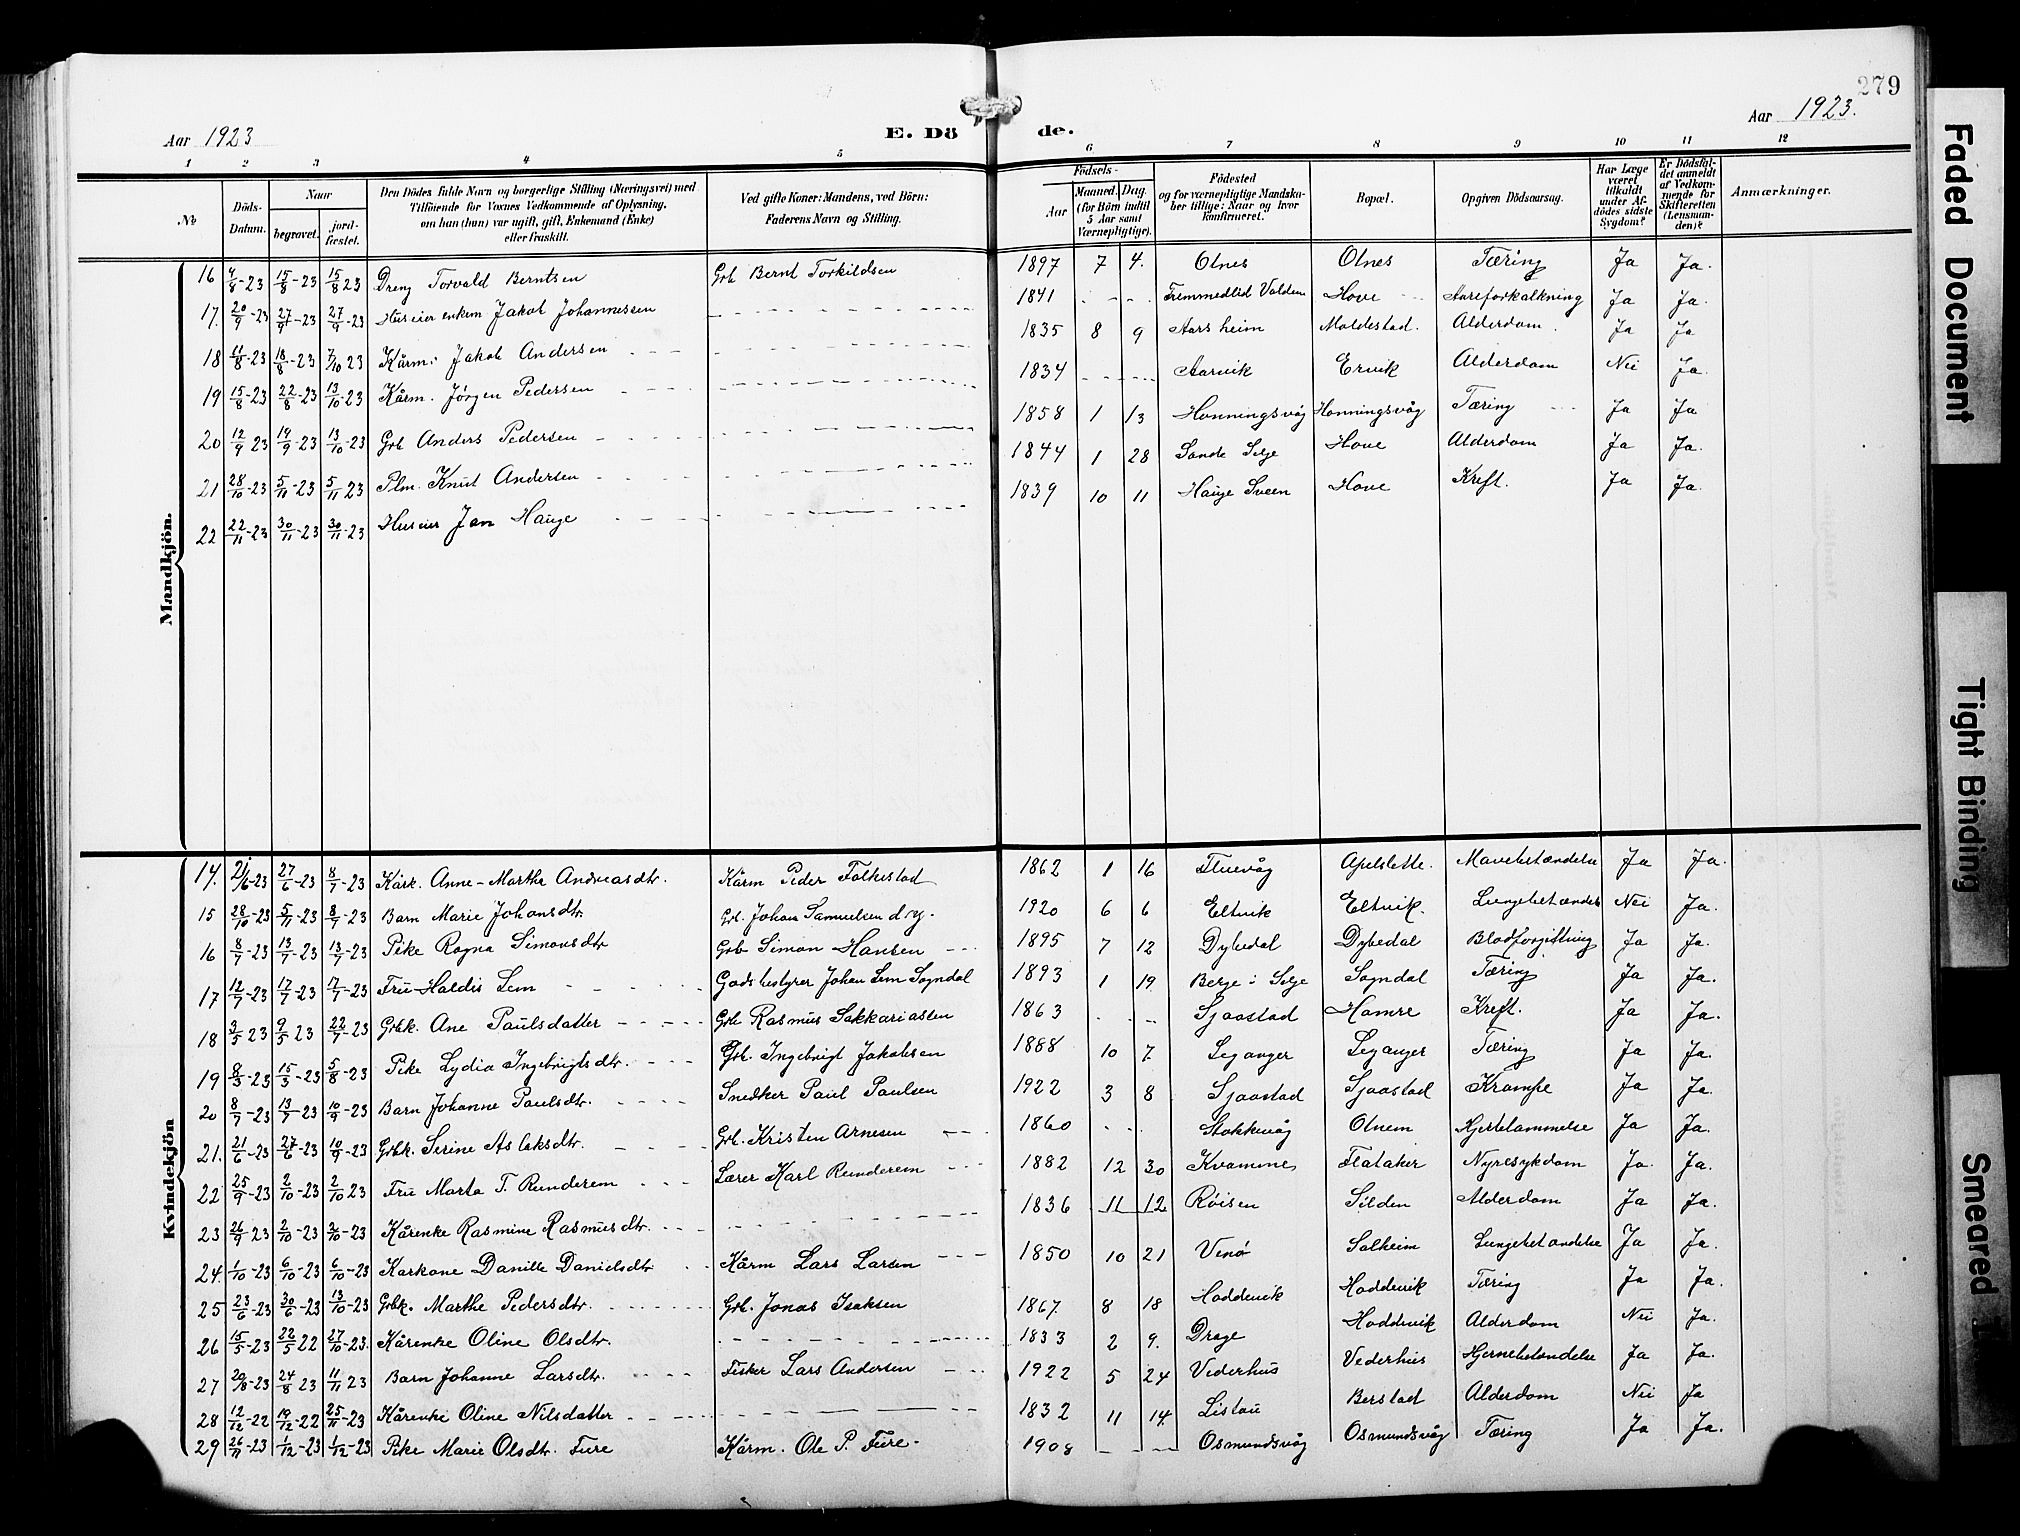 279
Aar 1923
E. Dö
de.
Aar 1923.
1 2 3 4 5 6 7 8 9 10 11 12
№
Döds-Datum.
Naar
begravet.
jord-fæstet.
Den Dödes fulde Navn og borgerlige Stilling (Næringsvei) med
Tilföiende for Voxnes Vedkommende af Oplysning,
om han (hun) var ugift, gift, Enkemand (Enke)
eller fraskilt.
Ved gifte Koner: Mandens, ved Börn:
Faderens Navn og Stilling.
Födsels-
Aar
Maaned. Dag.
(for Börn indtil
5 Aar samt
Værnepligtige).
Födested
og for værnepligtige Mandska-
ber tillige: Naar og hvor
konfirmeret.
Bopæl.
Opgiven Dödsaarsag.
Har Læge
været
tilkaldt
under Af-
dödes sidste
Sygdom?
Er Dödsfal-
det anmeldt
af Vedkom-
mende for
Skifteretten
(Lensman-
den)?
Anmærkninger.
Mandkjön.
16 4/8-23 15/8-23 15/8 23 Dreng Torvald Berntsen Grb Bernt Torkildsen 1897 7 4. Otnes Otnes Tæring Ja Ja.
17. 20/9-23 27/9-23 27/9-23 Huseier enkem Jakob Johannessen 1841 Fremmedlid Volden Hove Aareforkalkning Ja Ja.
18 11/8-23 18/8-23 7/10 23 Kårm. Jakob Andersen 1835 8 9 Aarsheim Moldestad. Alderdom. Ja Ja
19 15/8-23 22/8-23 13/10-23 Kårm. Jørgen Pedersen 1834 Aarvik Ervik Alderdom Nei Ja.
20 12/9 23 19/9-23 13/10-23 Grb Anders Pedersen 1858 1 13 Honningsvåg Honningsvåg Tæring Ja Ja
21 28/10-23 5/11-23 5/11 23 Plm. Knut Andersen 1844 1 28 Sande Selje Hove Alderdom Ja Ja.
22 22/11-23 30/11-23 30/11-23 Huseier Jan Hauge 1839 10 11 Hauge Sveen Hove Kreft. Ja Ja.
Kvindekjön
14. 21/6-23 27/6-23 8/7-23 Kårk. Anne-Marthe Andreasdtr. Kårm Peder Folkestad 1862 1 16 Fluevåg Apelslette. Mavebetændelse Ja Ja.
15 28/10-23 5/11-23 8/7-23 Barn Marie Johansdtr. Grb. Johan Samuelsen d.y. 1920 6 6 Eltvik Eltvik. Lungebetændelse Nei Ja.
16 8/7-23 13/7-23 13/7-23 Pike Ragna Simonsdtr Grb Simon Hansen 1895 7 12 Dybedal Dybedal Blodforgiftning Ja Ja.
17 12/7-23 17/7-23 17/7-23 Fru Haldis Lem Godsbestyrer Johan Lem Sogndal 1893 1 19. Berge i Selje Sogndal Tæring Ja Ja.
18 3/5 23 9/5 23 22/7-23 Grbk. Ane Paulsdatter Grb Rasmus Sakkariassen 1863 Sjaastad Hamre Kreft. Ja Ja.
19 8/3-23 15/3-23 5/8-23 Pike Lydia Ingebrigtsdtr. Grb. Ingebrigt Jakobsen 1888 10 7. Leganger Leganger Tæring Ja Ja.
20 8/7-23 13/7 23 10/9-23 Barn Johanne Paulsdtr. Snedker Paul Paulsen 1922 3 8 Sjaastad Sjaastad Krampe Ja Ja.
21. 21/6-23 27/6-23 10/9-23 Grbk. Serine Aslaksdtr. Grb. Kristen Arnesen 1860 Stokkevåg Otnem Hjertelammelse Ja Ja.
22 25/9-23 2/10-23 2/10 23 Fru Marta T. Runderem Lærer Karl Runderem 1882 12 30 Kvamme Flataker Nyresykdom Ja. Ja.
23 26/9 23 2/10-23 2/10-23 Kårenke Rasmine Rasmusdtr. 1836 11 12 Røisen Silden Alderdom Ja Ja.
24. 1/10-23 6/10-23 6/10-23 Karkone Danille Danielsdtr Kårm Lars Larsen 1850 10 21 Venø Solheim Lungebetændelse Ja Ja.
25 23/6-23 30/6-23 13/10-23 Grbk. Marthe Pedersdtr. Grb. Jonas Isaksen 1867. 8 18 Hoddevik Hoddevik Tæring Ja Ja.
26 15/5-23 22/5 22 27/10-23. Kårenke Oline Olsdtr. 1833 2 9. Drage Hoddevik Alderdom Nei Ja.
27 20/8-23 24/8 23 11/11 23 Barn Johanne Larsdtr. Fisker Lars Andersen 1922 5 24 Vederhus Vederhus Hjernebetændelse Ja Ja.
28 12/12-22 19/12-22 25/11-23 Kårenke Oline Nilsdatter 1832 11 14. Listau Berstad Alderdom Nei Ja
29 26/11-23 1/12-23 1/12-23 Pike Marie Olsdtr. Fure Kårm. Ole P. Fure. 1908 Osmundsvåg Osmundsvåg Tæring Ja Ja.
Faded Document
Tight Binding
Smeared